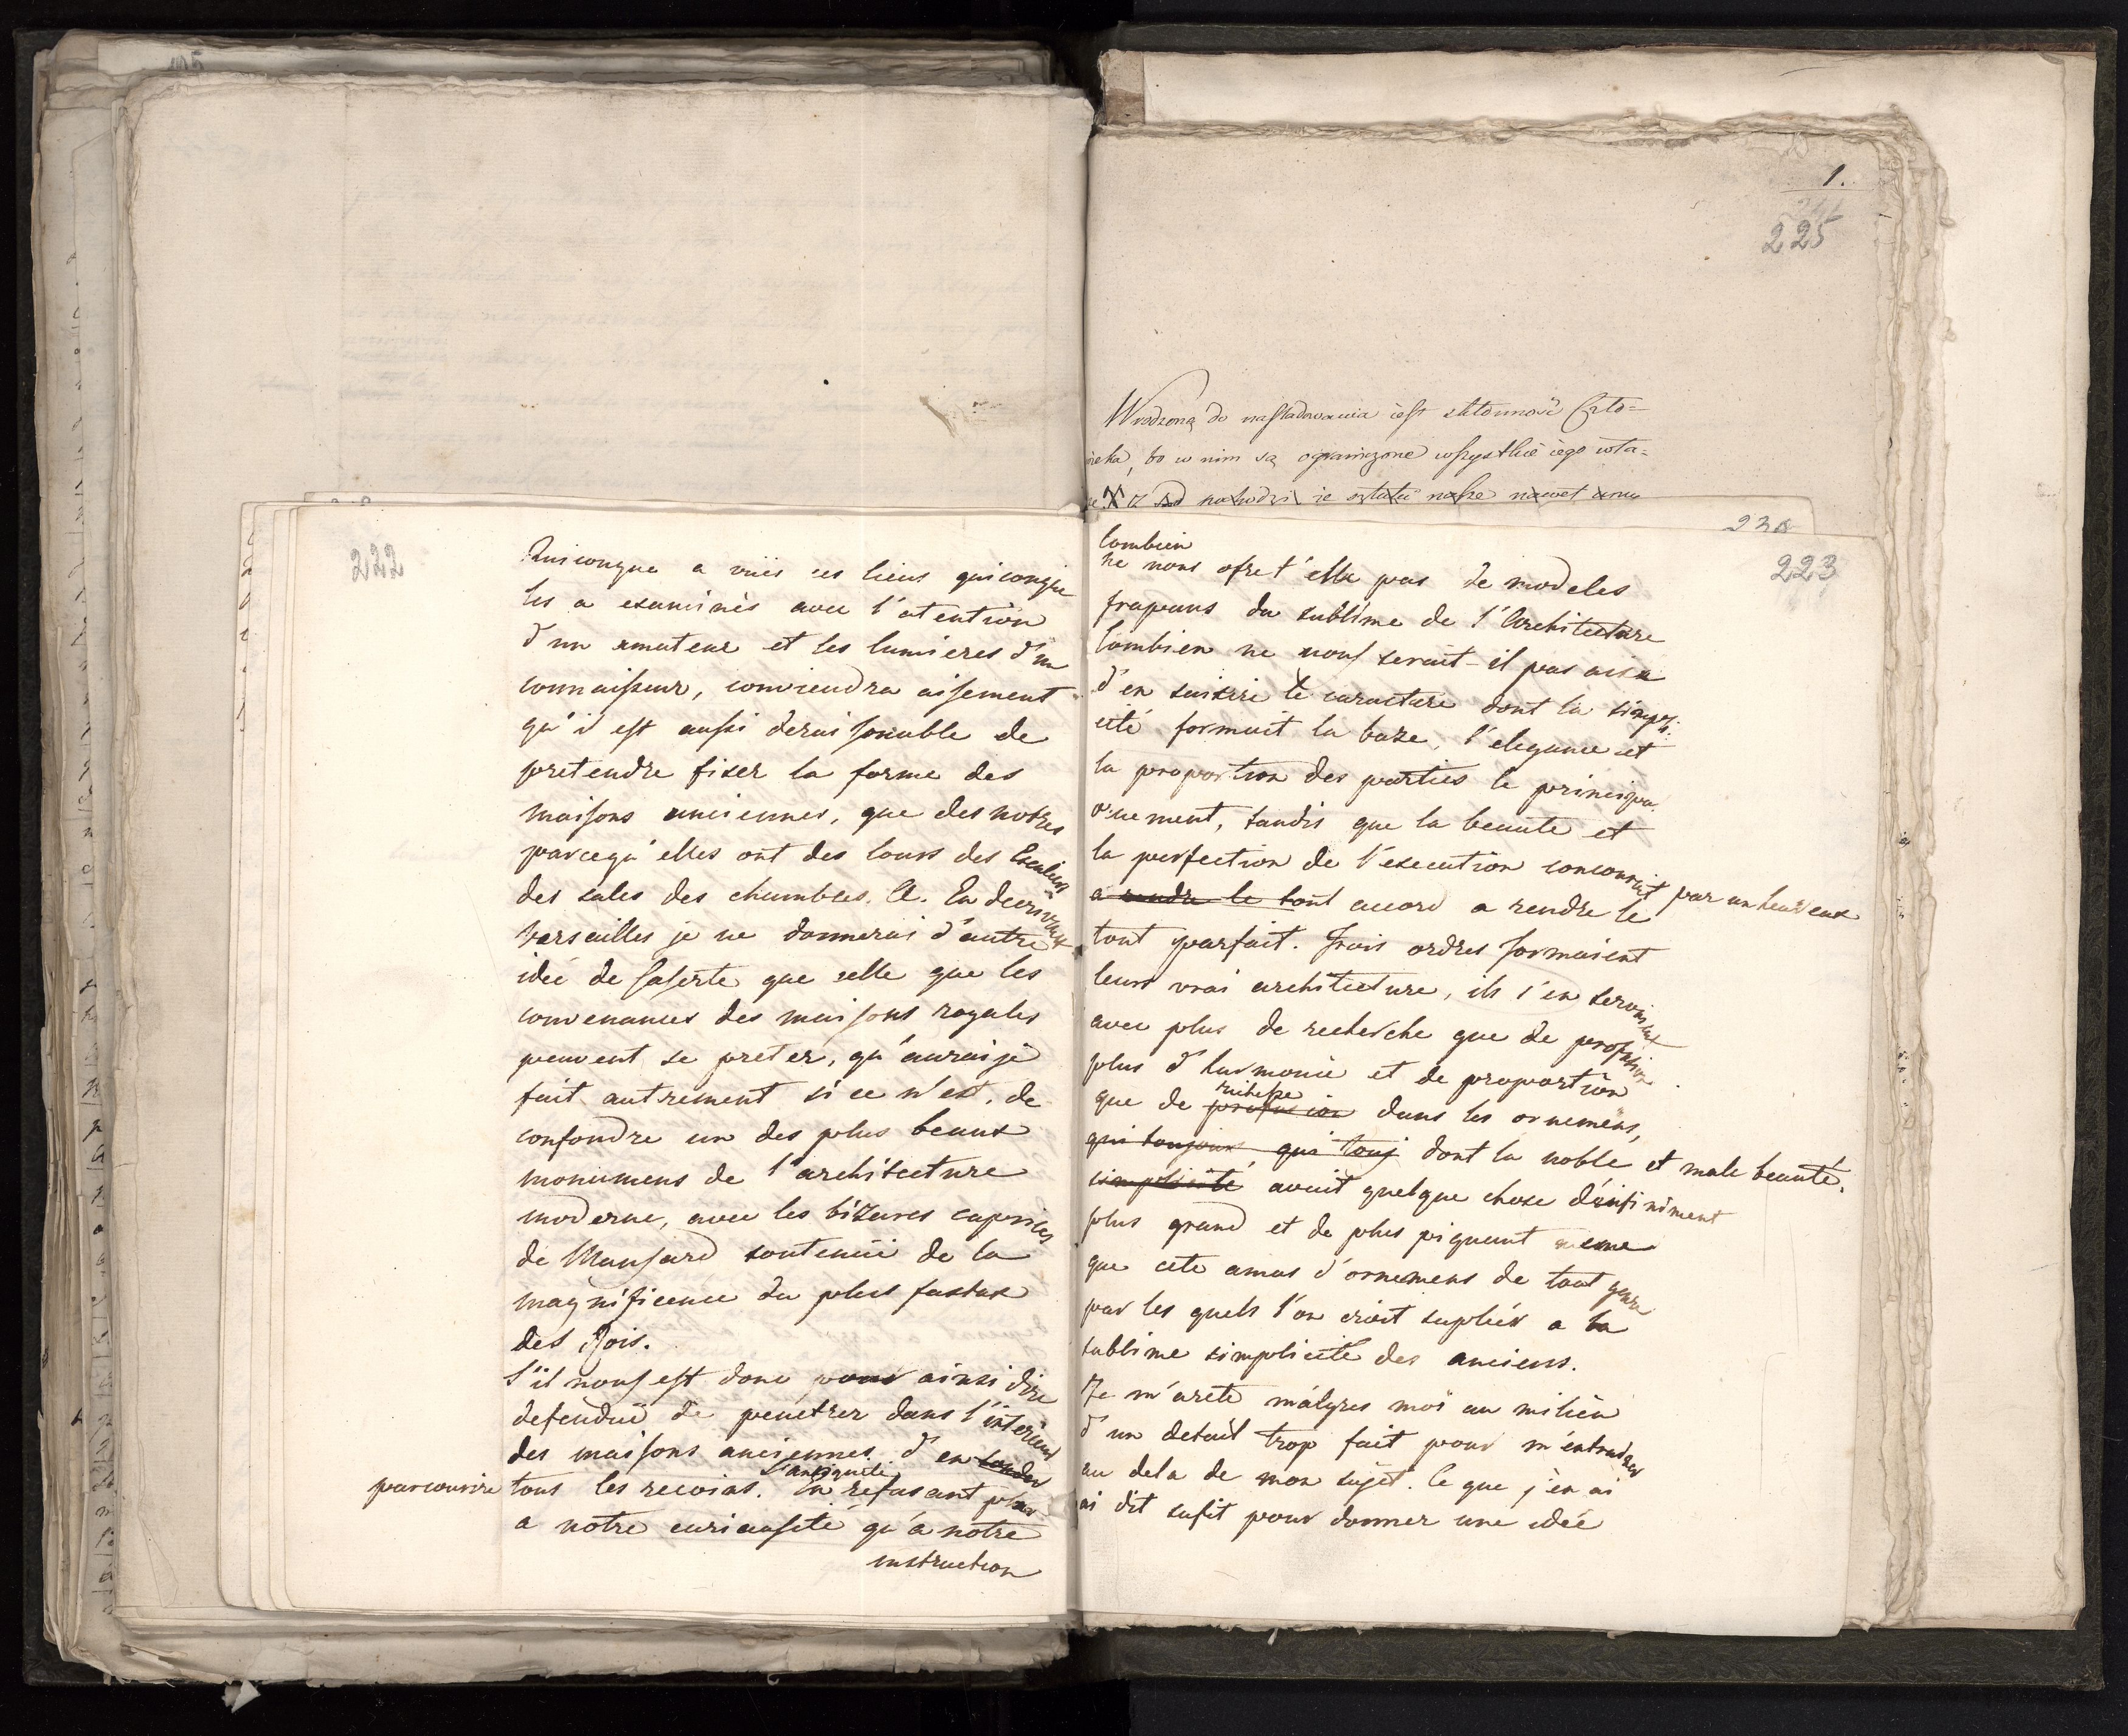 222
Quiconque a vües ces lieux quiconque
les a examinés avec l'atention
d'un amateur et les lumieres d'un
connaisseur, conviendra aisement
qu'il est aussi deraisonable de
pretendre fixer la forme des
maisons anciennes, que des notres
parcequ'elles ont des cours des Escaliers
des sales des chambres. &. En decrivant
Versailles je ne donnerai d'autre
idée de que celle que les
convenances des maisons royales
peuvent se preter, qu'aurais je
fait autrement si ce n'est, de
confondre un des plus beaux
monumens de l'architecture
moderne, avec les bizares caprices
de Mansard soutenüe de la
magnificence du plus fastux
des Rois.
S'il nous est donc pour ainsi dire
defendüe de penetrer dans l'interieur
des maisons anciennes. d'en sonder
parcourire tous les recoins. L'antiquité En refusant plus
a notre curieusité qu'a notre
instruction
1.
225
Wrodzoną do nasladowania iest skłonność Czło=
wieka, bo w nim są ograniczone wszystkie iego wła=
nawet
223
Combien
ne nous ofre t'elle pas de modeles
frapans du sublime de l'Architecture
Combien ne nous serait-il pas aisé
d'en saisire le caractere dont la simpli:
cité formait la baze, l'elegance et
la proportion des parties le principa
ornement, tandis que la beauté et
la perfection de l'execution concourait par un heureux
a rendre le tout accord a rendre le
tout parfait. Trois ordres formaient
leur vrai architecture, ils s'en servaient
avec plus de recherche que de profusion
plus d'harmonie et de proportion
que de profusion richesse dans les ornemens,
qui toujours qui touj dont la noble et male beauté,
simplicité avait quelque chose d'infiniment
plus grand et de plus piquant meme
que cete amas d'ornemens de tout genre
par les quels l'on croit supléer a la
sublime simplicité des anciens.
Je m'arete malgres moi au milieu
d'un detail trop fait pour m'entrainer
au dela de mon sujet. Ce que j'en ai
ai dit sufit pour donner une idée